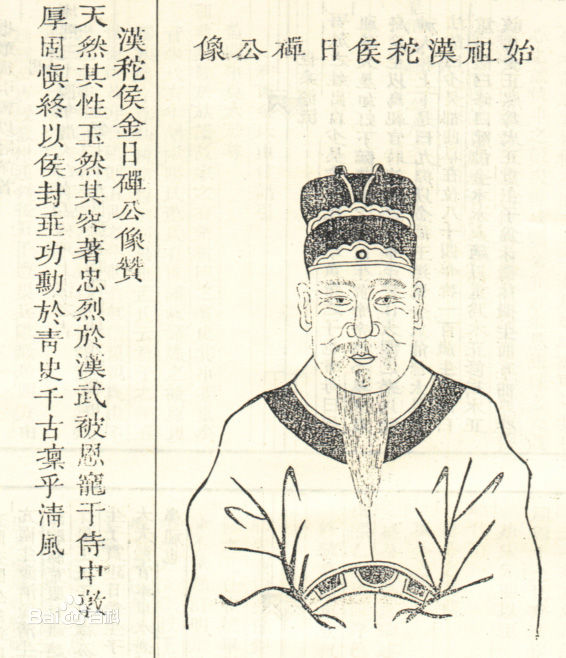 始祖漢秺侯日磾公像
漢秺侯金日磾公像贊
天然其性玉然其容著忠烈於漢武被恩寵于侍中敦
厚固慎終以侯封垂功勳於青史千古稟乎清風
Bai百科